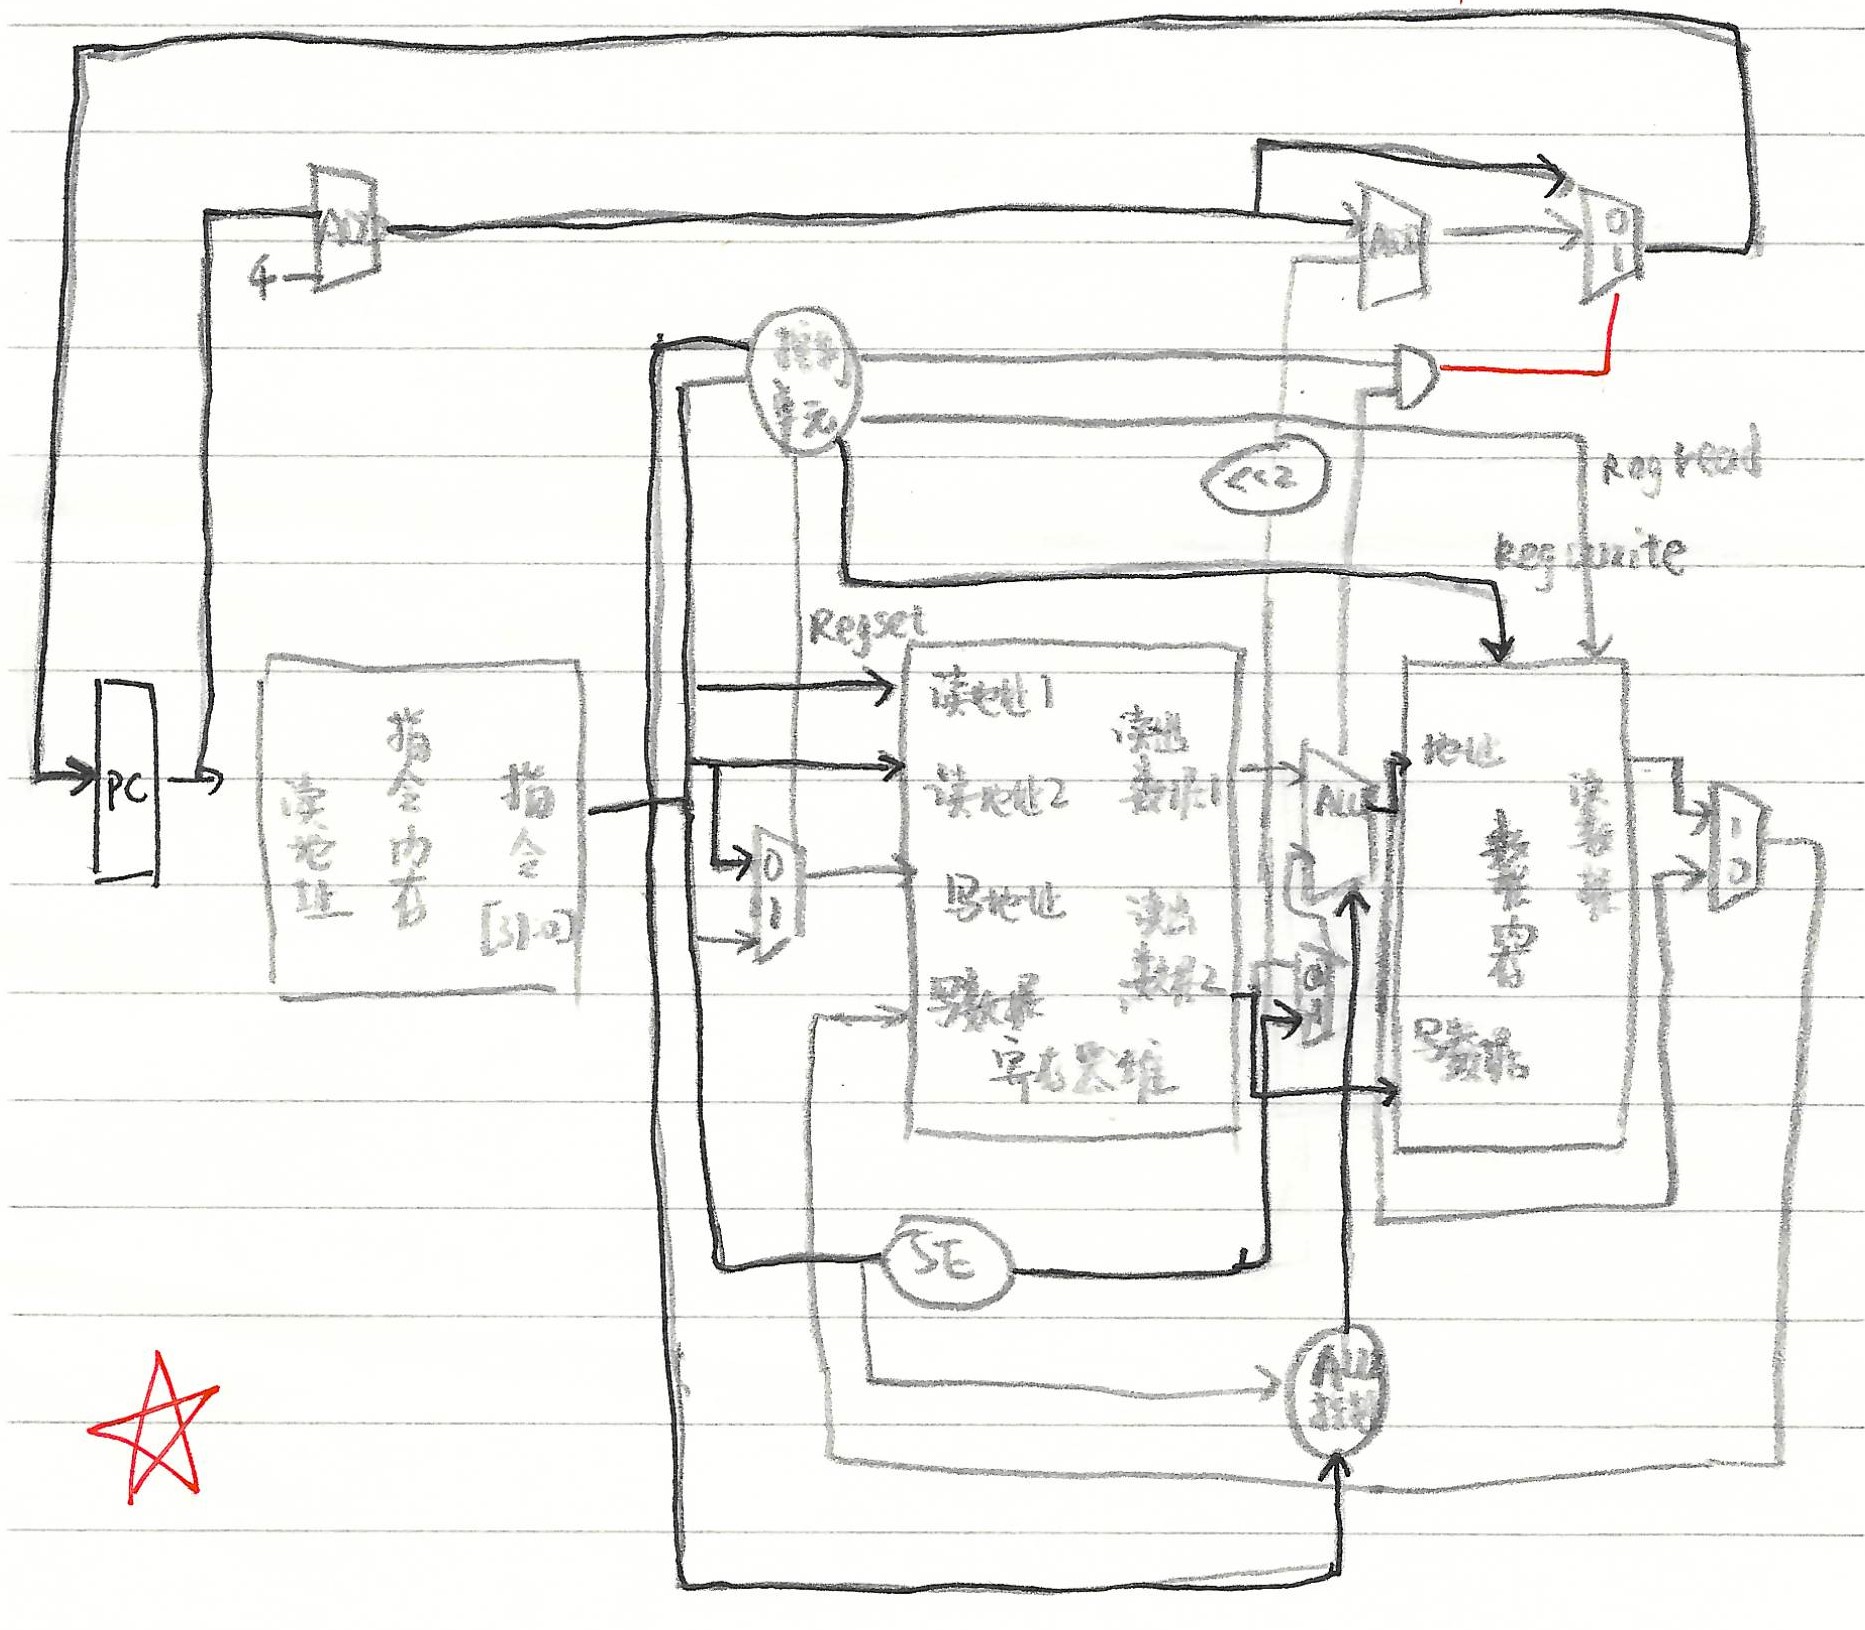 ADD
4
ADD
0
1
控制
单元
<<2
Regread
Regwrite
Regset
PC
读地址
指令内存
指令
[31:0]
0
1
读地址1
读地址2
写地址
写数据
读出
数据1
读出
数据2
寄存器堆
ALU
0
1
地址
读数据
写数据
1
0
SE
ALU
控制